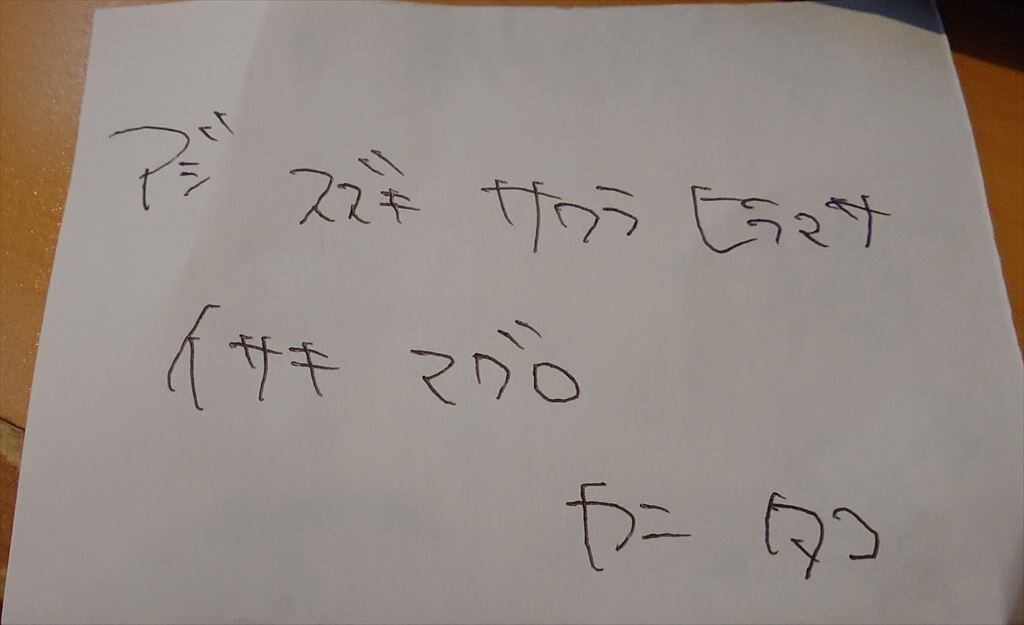 アジ スズキ サワラ ヒラマサ
イサキ マグロ
カニ タコ